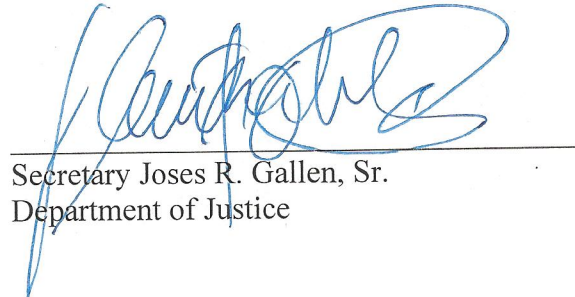 Secretary Joses R. Gallen, Sr.
Department of Justice